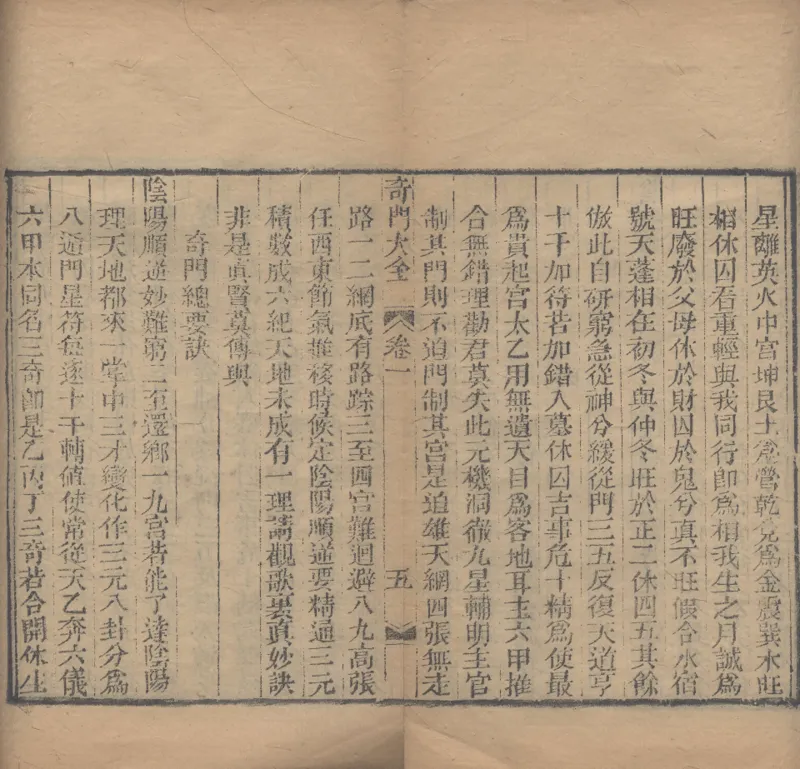 星離英火中宮坤艮土為營乾兌為金震巽木旺
相休囚看重輕與我同行即為相我生之月誠為
旺廢於父母休於財囚於鬼兮真不旺假令水宿
號天蓬相在初冬與仲冬旺於正二休四五其餘
倣此自研窮急從神兮緩從門三五反復天道亨
十干加符若加錯入墓休囚吉事危十精為使最
為貴起宮太乙用無遺天目為客地耳主六甲推
合無錯理勸君莫失此元機洞徹九星輔明主官
制其門則不迫門制其宮是迫雄天網四張無走
奇門大全 卷一 五
路一二網底有路踪三至四宮難迴避八九高張
任西東節氣推移時候定陰陽順逆要精通三元
積數成六紀天地未成有一理請觀歌裏真妙訣
非是真賢莫傳與
奇門總要訣
陰陽順逆妙難窮二至還鄉一九宮若能了達陰陽
理天地都來一掌中三才變化作三元八卦分為
八遁門星符每逐十干輔值使常從天乙奔六儀
六甲本同名三奇即是乙丙丁三奇若合開休生